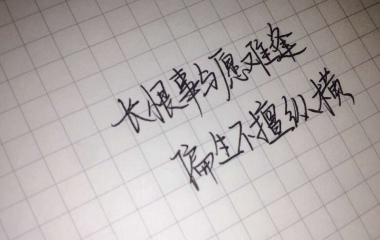 长恨事与愿难逢
偏生不擅纵横